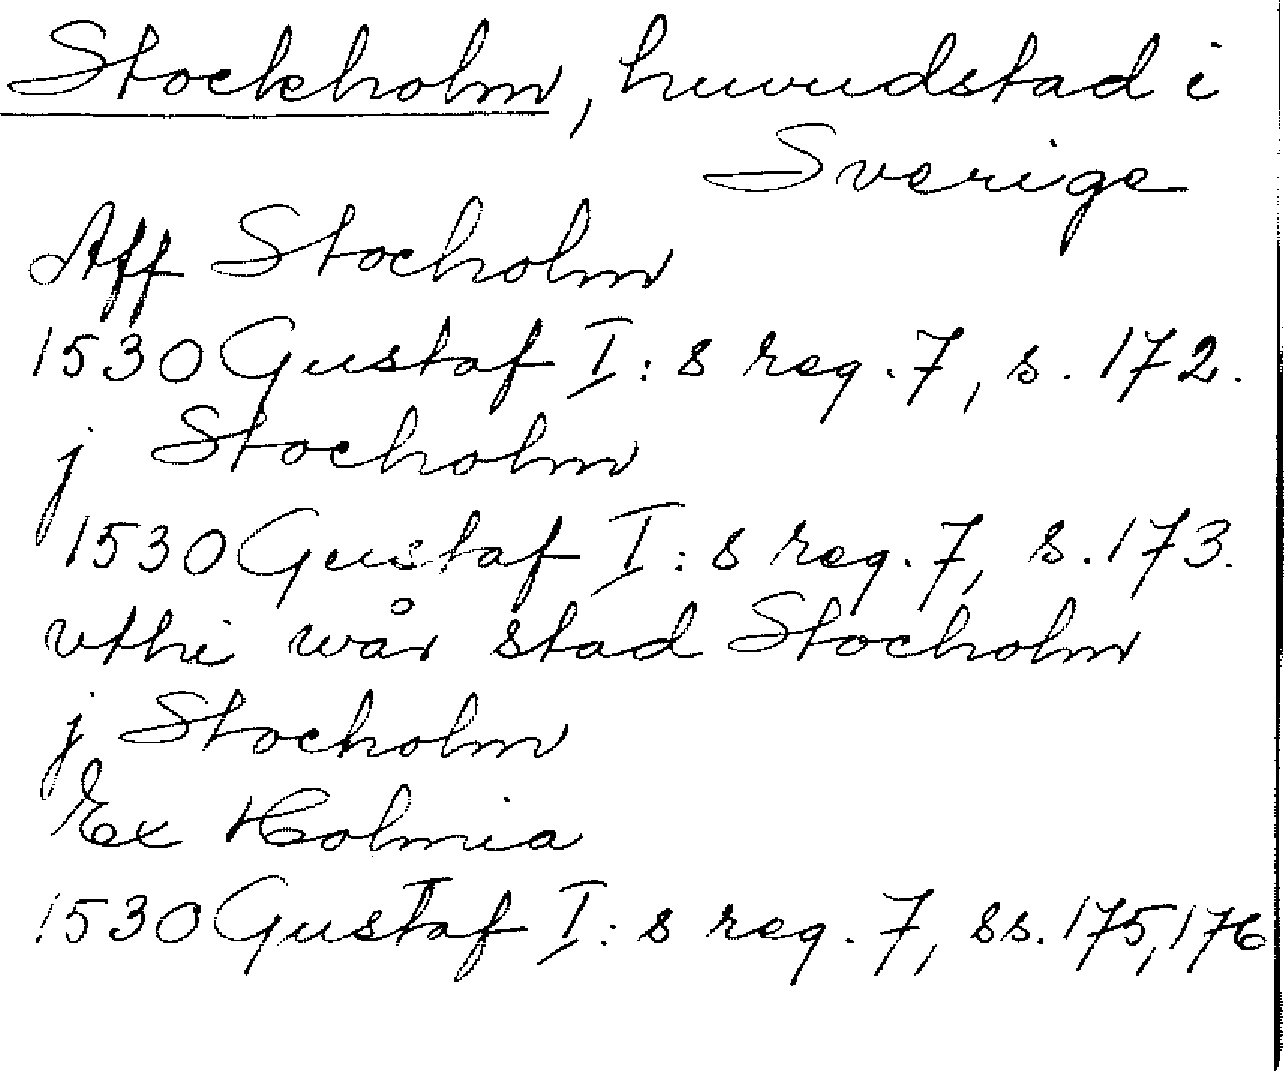 Stockholm, huvudstad i
Sverige
Aff Stocholm
1530 Gustaf I:s reg. 7, s. 172.
j Stocholm
1530 Gustaf I:s reg. 7, s. 173.
vthi wår stad Stocholm
j Stocholm
Ex Holmia
1530 Gustaf I:s reg. 7, ss. 175, 176